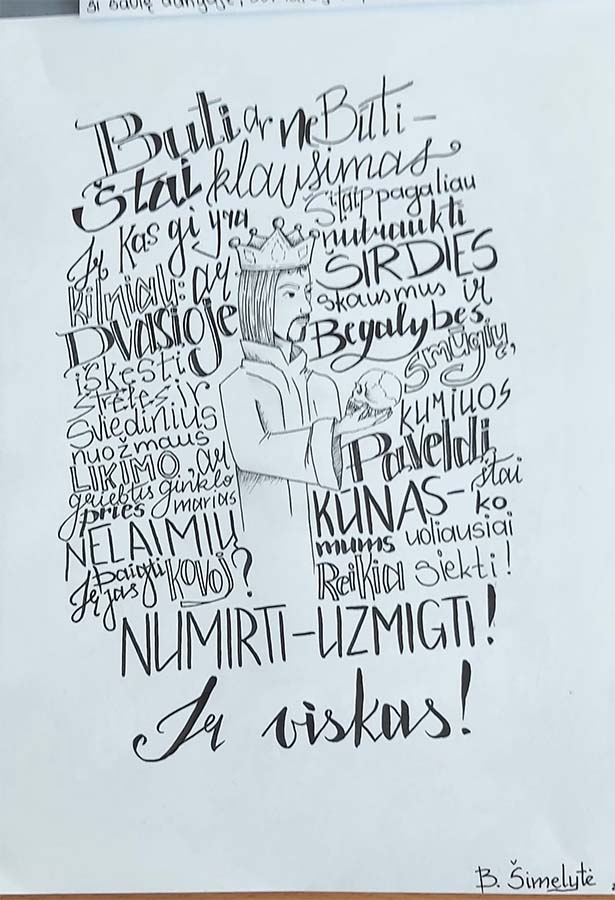 Būti ar ne Būti –
Štai klausimas
Ir kas gi yra
kilniau: ar
Dvasioje
iškęsti
strėles ir
sviedinius
nuožmaus
LIKIMO, ar
griebtis ginklo
prieš marias
NELAIMIŲ
baigti
Ir jas kovoj?
Šitaip pagaliau
nutraukti
ŠIRDIES
skausmus ir
Begalybes
smūgių,
kuriuos
Paveldi
KŪNAS – štai
ko
mums uoliausiai
Reikia siekti!
NUMIRTI – UŽMIGTI!
Ir viskas!
B. Šimelytė